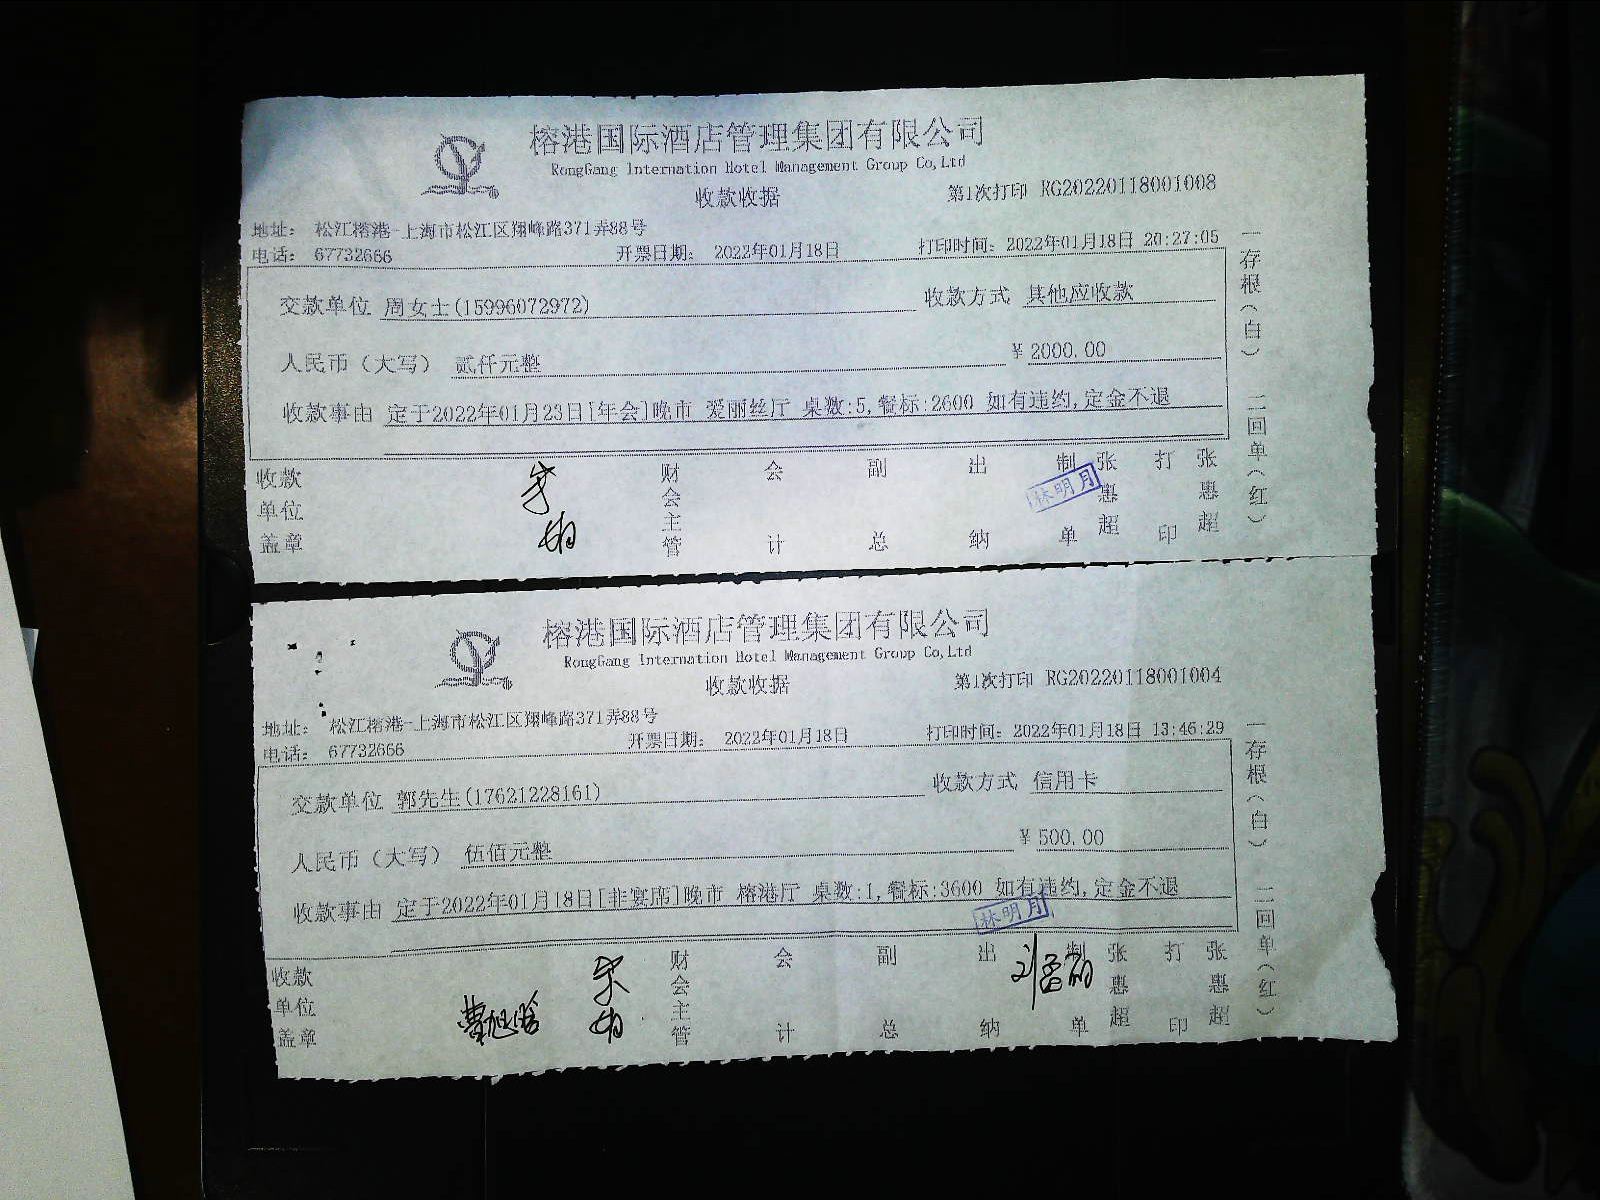 榕港国际酒店管理集团有限公司
RongGang Internation Hotel Management Group Co,Ltd
收款收据
第1次打印 RG20220118001008
地址： 松江榕港-上海市松江区翔峰路371弄88号
电话： 67732666 开票日期： 2022年01月18日 打印时间：2022年01月18日 20:27:05
交款单位 周女士(15996072972) 收款方式 其他应收款
人民币（大写） 贰仟元整 ￥2000.00
收款事由 定于2022年01月23日[年会]晚市 爱丽丝厅 桌数:5,餐标:2600 如有违约,定金不退
一存根（白） 二回单（红）
收款单位盖章 财会主管 会计 副总 出纳 制单 张惠超 打印 张惠超
林明月
榕港国际酒店管理集团有限公司
RongGang Internation Hotel Management Group Co,Ltd
收款收据
第1次打印 RG20220118001004
地址： 松江榕港-上海市松江区翔峰路371弄88号
电话： 67732666 开票日期： 2022年01月18日 打印时间：2022年01月18日 13:46:29
交款单位 郭先生(17621228161) 收款方式 信用卡
人民币（大写） 伍佰元整 ￥500.00
收款事由 定于2022年01月18日[非宴席]晚市 榕港厅 桌数:1,餐标:3600 如有违约,定金不退
一存根（白） 二回单（红）
林明月
收款单位盖章 财会主管 会计 副总 出纳 制单 张惠超 打印 张惠超